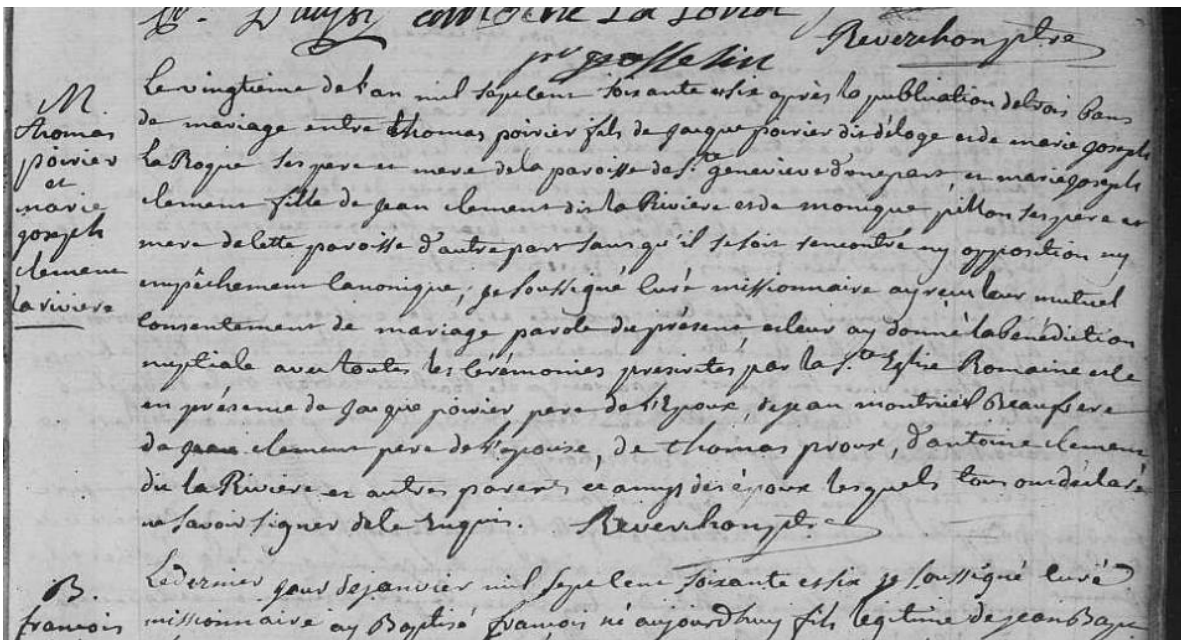 Reverchon ptre
M.
thomas
poirier
et
marie
joseph
clement
la riviere
Le vingtieme de l'an mil sept cent soixante et six après la publication de trois bans
de mariage entre thomas poirier fils de jacque poirier dit déloge et de marie joseph
la Roque ses pere et mere de la paroisse de Ste genevieve d'une part, et marie joseph
clement fille de jean clement dit la Riviere et de monique pillon ses pere et
mere de cette paroisse d'autre part sans qu'il se soit rencontré ny opposition ny
empêchement canonique, je soussigné curé missionaire ay recu leur mutuel
consentement de mariage parole de présent et leur ay donné la bénédiction
nuptiale avec toutes les cérémonies prescrites par la Ste Eglise Romaine et ce
en présence de jacque poirier pere de l'Epoux, de jean montruil Beaufrere
de jean clement pere de l'épouse, de thomas proux, d'antoine clement
dit la Riviere et autres parents et amys des époux lesquels tous ont déclaré
ne savoir signer de ce Enquis. Reverchon ptre
B.
francois
Le dernier jour de janvier mil sept cent soixante et six je soussigné curé
missionnaire ay Baptisé francois né aujourd'huy fils legitime de jean Bap